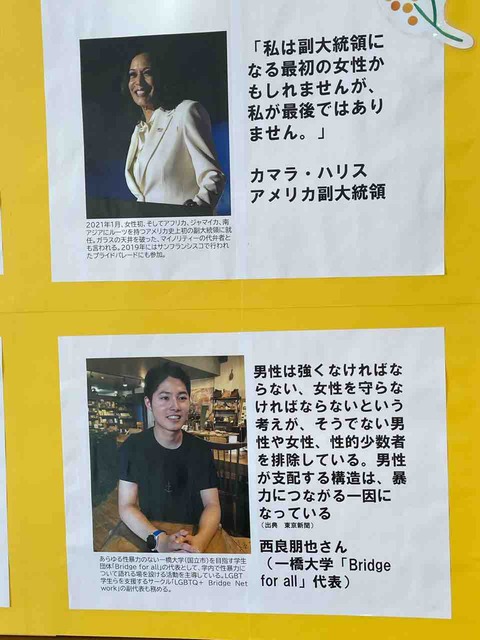 「私は副大統領に
なる最初の女性か
もしれませんが、
私が最後ではあり
ません。」
カマラ・ハリス
アメリカ副大統領
2021年1月、女性初、そしてアフリカ、ジャマイカ、南
アジアにルーツを持つアメリカ史上初の副大統領に就
任。ガラスの天井を破った、マイノリティーの代弁者と
も言われる。2019年にはサンフランシスコで行われ
たプライドパレードにも参加。
男性は強くなければな
らない、女性を守らな
ければならないという
考えが、そうでない男
性や女性、性的少数者
を排除している。男性
が支配する構造は、暴
力につながる一因に
なっている
（出典　東京新聞）
西良朋也さん
（一橋大学「Bridge
for all」代表）
あらゆる性暴力のない一橋大学（国立市）を目指す学生
団体「Bridge for all」の代表として、学内で性暴力に
ついて語れる場を設ける活動を主導している。LGBT
学生らを支援するサークル「LGBTQ+ Bridge Net
work」の副代表も務める。